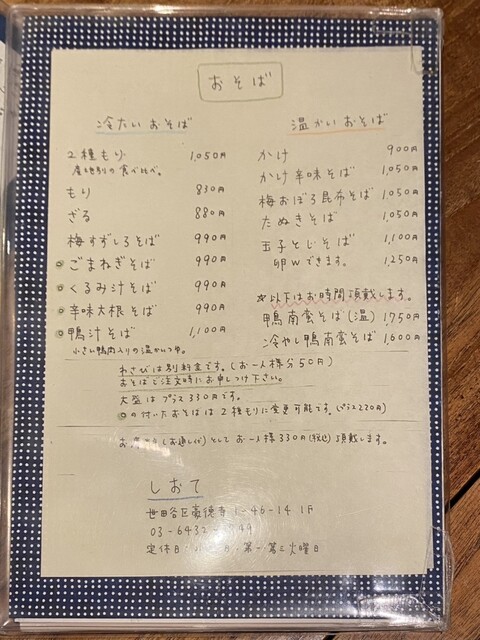 おそば
冷たいおそば
2種もり 1,050円
産地別の食べ比べ。
もり 830円
ざる 880円
梅すずしろそば 990円
◎ごまねぎそば 990円
◎くるみ汁そば 990円
◎辛味大根そば 990円
◎鴨汁そば 1,100円
小さい鴨肉入りの温かいつゆ。
温かいおそば
かけ 900円
かけ辛味そば 1,050円
梅おぼろ昆布そば 1,050円
たぬきそば 1,050円
玉子とじそば 1,100円
卵Wできます。 1,250円
☆以下はお時間頂戴します。
鴨南蛮そば(温) 1,750円
冷やし鴨南蛮そば 1,600円
わさびは別料金です。(お一人様分50円)
おそばご注文時にお申しつけ下さい。
大盛はプラス330円です。
◎の付いたおそばは2種もりに変更可能です。(プラス220円)
(お通し代)としてお一人様330円(税込)頂戴します。
しおて
世田谷区豪徳寺1-46-14 1F
03-6432-
定休日 第一第三火曜日